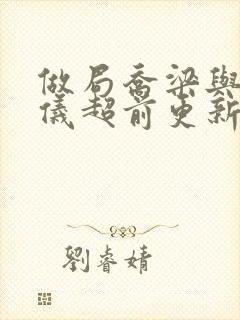 做局喬梁與
儀超前更新
劉睿婧